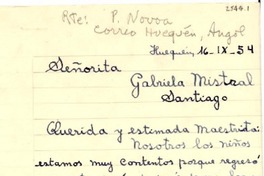 2544.1
Rte: P. Novoa
Correo Huequén, Angol
Huequén, 16-IX-54
Señorita
Gabriela Mistral
Santiago
Querida y estimada Maestrita:
Nosotros los niños
estamos muy contentos porque regresó